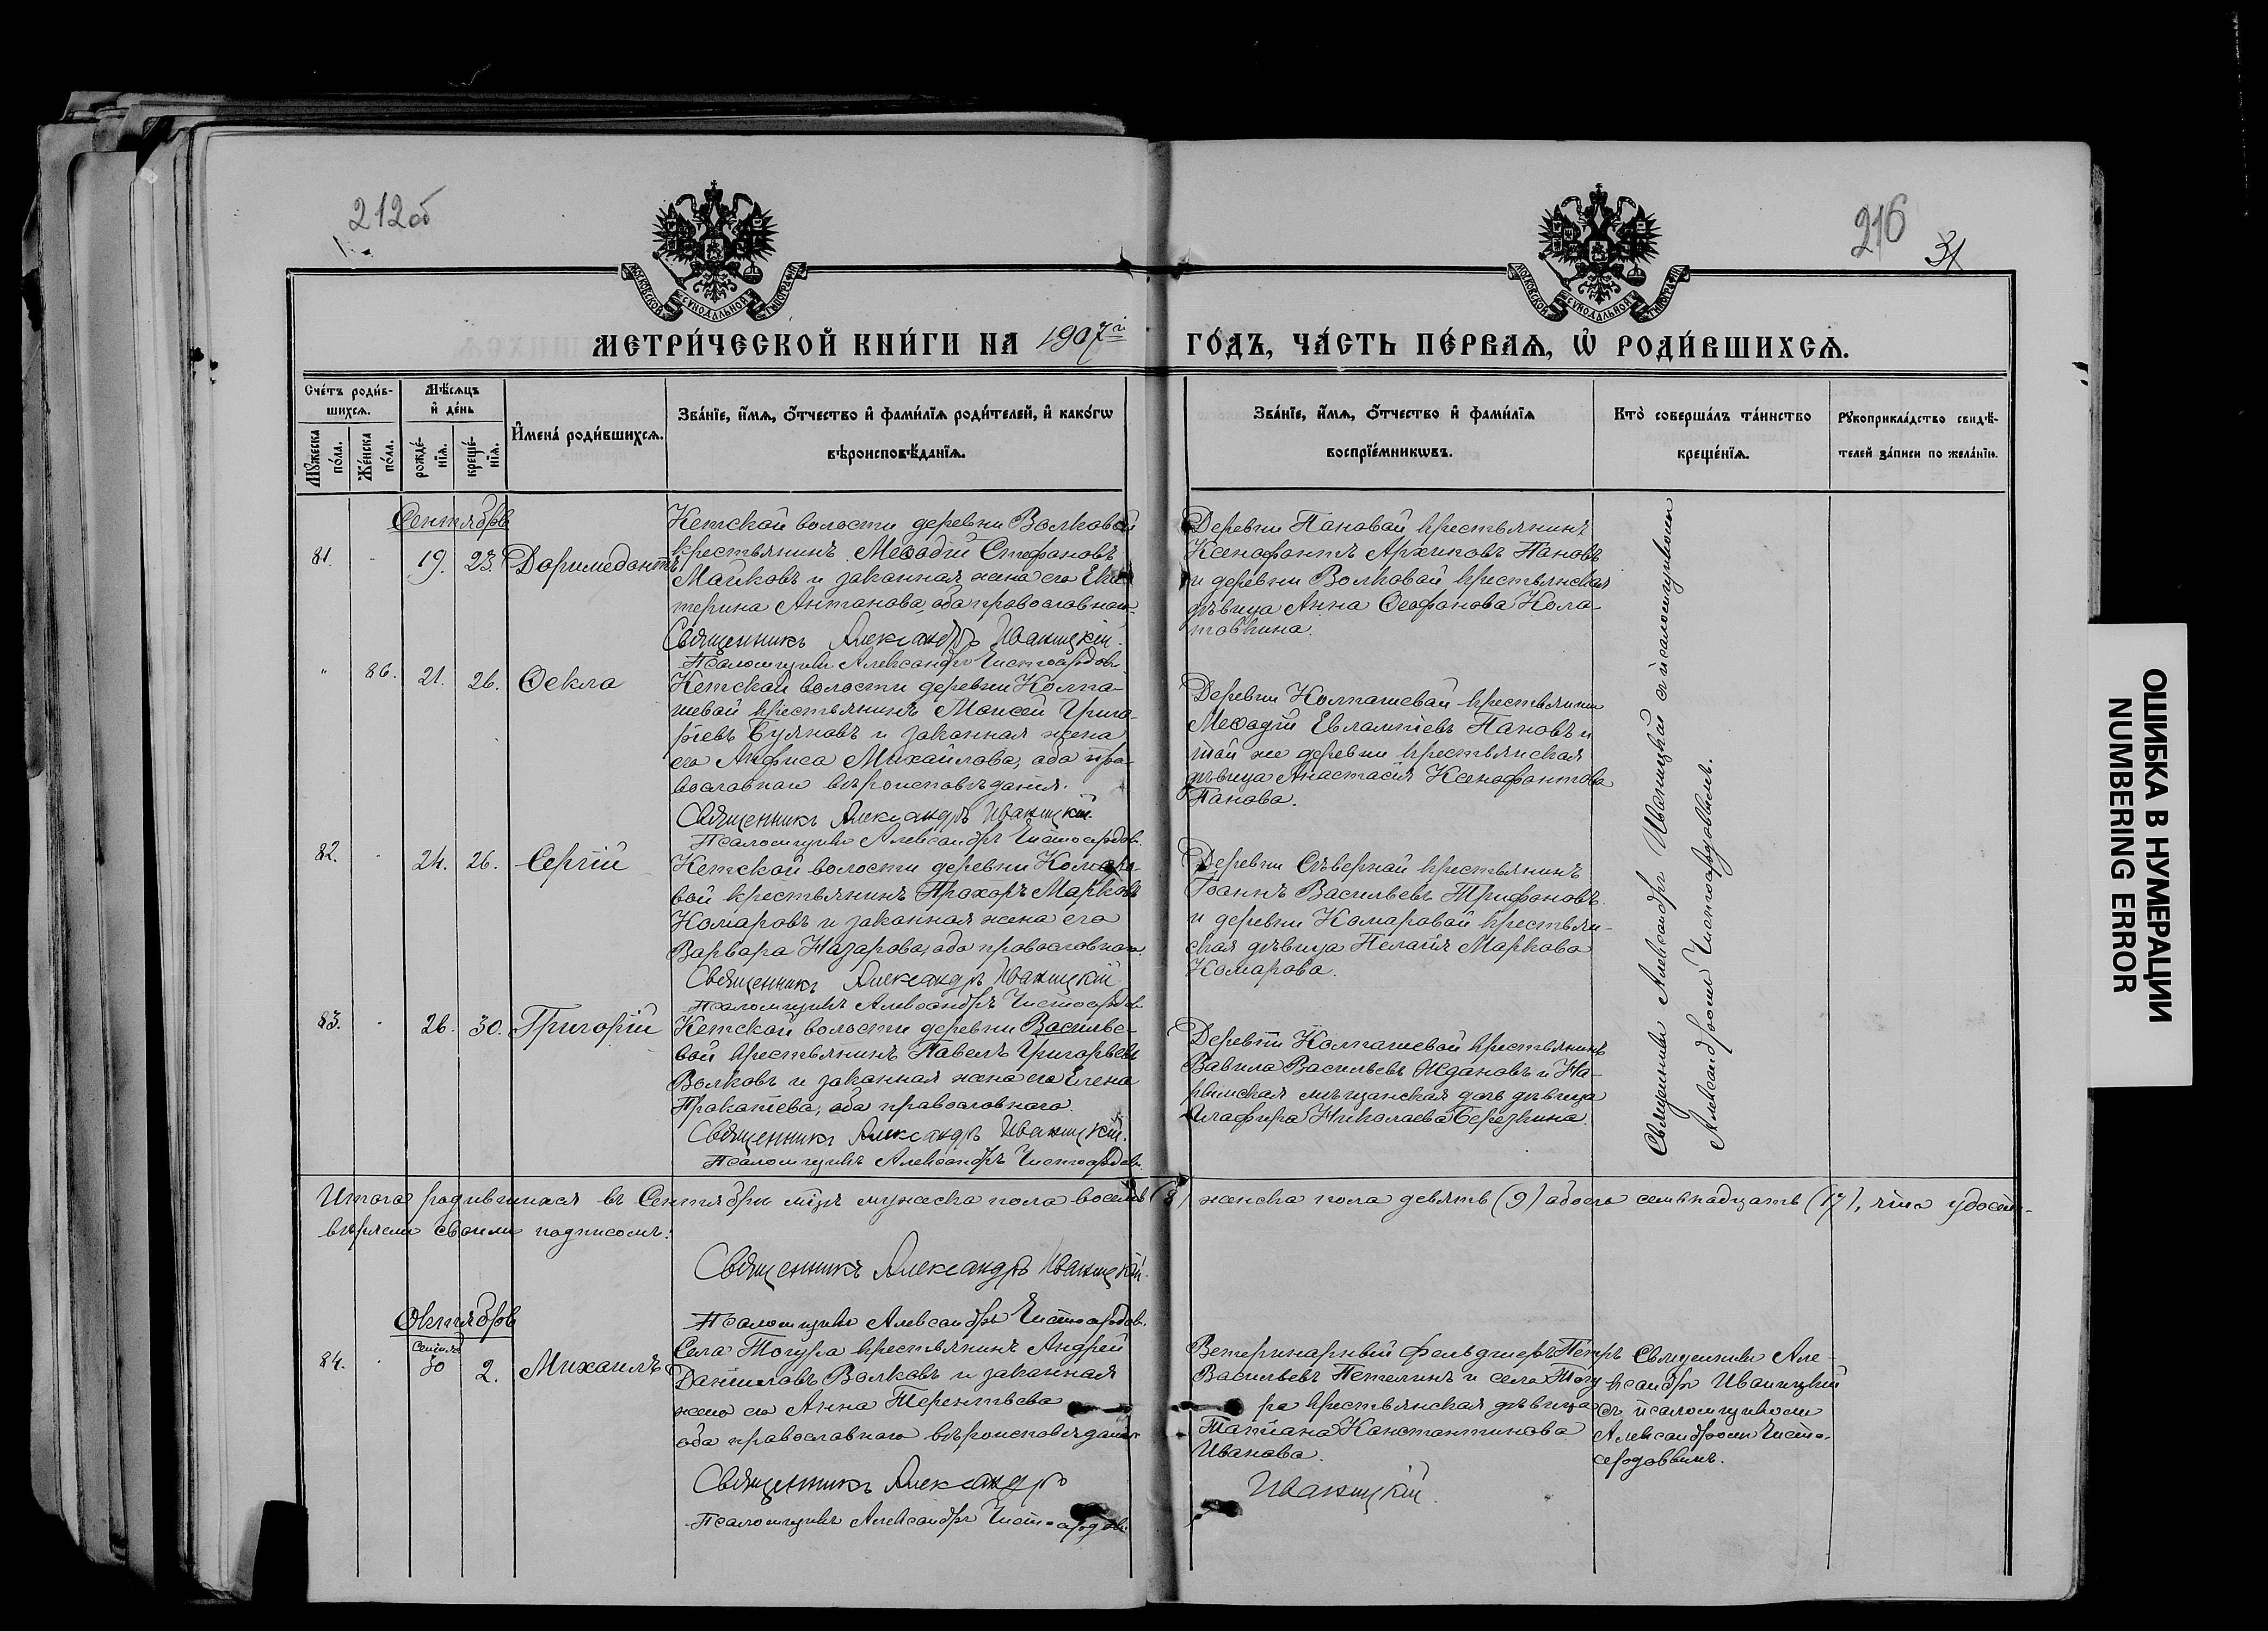 212 об
216
31
МОСКОВСКОЙ СѴНОДАЛЬНОЙ ТИПОГРАФІИ
МОСКОВСКОЙ СѴНОДАЛЬНОЙ ТИПОГРАФІИ
МЕТРИ́ЧЕСКОЙ КНИ́ГИ НА 1907й ГО́ДЪ, ЧА́СТЬ ПЕ́РВАѦ, Ѡ҆ РОДИ́ВШИХСѦ.
Сче́тъ роди́в-
шихсѧ.
Мѣ́сѧцъ
и҆ де́нь
И҆мена̀ роди́вшихсѧ.
Зва́нїе, и҆́мѧ, ѻ҆́тчество и҆ фами́лїѧ роди́телей, и҆ како́гѡ
вѣроисповѣ́данїѧ.
Зва́нїе, и҆́мѧ, ѻ҆́тчество и҆ фами́лїѧ
воспрїе́мникѡвъ.
Кто̀ соверша́лъ та́инство
креще́нїѧ.
Рꙋкоприкла́дство свидѣ́-
телей за́писи по жела́нїю.
Мꙋ́жеска
по́ла.
Же́нска
по́ла.
рожде́-
нїѧ.
креще́-
нїѧ.
Сентябрь
81. - 19. 23. Доримедонтъ
Кетской волости деревни Волковой
крестьянинъ Меѳодій Стефановъ
Майковъ и законная жена его Ека-
терина Антонова, оба православнаго
Священникъ Александръ Иваницкій.
Псаломщикъ Александръ Чистосердовъ
Деревни Пановой крестьянинъ
Ксенофонтъ Архиповъ Пановъ
и деревни Волковой крестьянская
дѣвица Анна Ѳеофанова Коло-
товкина.
" 86. 21. 26. Ѳекла
Кетской волости деревни Колпа-
шевой крестьянинъ Моисей Григо-
рьевъ Буяновъ и законная жена
его Анфиса Михайлова, оба пра-
вославнаго вѣроисповѣданія.
Священникъ Александръ Иваницкій.
Псаломщикъ Александръ Чистосердовъ.
Деревни Колпашевой крестьянинъ
Меѳодій Евлампіевъ Пановъ и
той же деревни крестьянская
дѣвица Анастасія Ксенофонтова
Панова.
82. - 24. 26. Сергій
Кетской волости деревни Комаро-
вой крестьянинъ Прохоръ Марковъ
Комаровъ и законная жена его
Варвара Назарова, оба православнаго.
Священникъ Александръ Иваницкій
Псаломщикъ Александръ Чистосердовъ.
Деревни Сѣверной крестьянинъ
Іоаннъ Васильевъ Трифоновъ
и деревни Комаровой крестьян-
ская дѣвица Пелагія Маркова
Комарова.
83. - 26. 30. Григорій
Кетской волости деревни Василье-
вой крестьянинъ Павелъ Григорьевъ
Волковъ и законная жена его Елена
Прокопіева, оба православнаго.
Священникъ Александръ Иваницкій.
Псаломщикъ Александръ Чистосердовъ.
Деревни Колпашевой крестьянинъ
Вавила Васильевъ Ждановъ и На-
рымская мѣщанская дочь дѣвица
Глафира Николаева Березкина.
Священникъ Александръ Иваницкій съ псаломщикомъ
Александромъ Чистосердовымъ.
Итого родившихся въ Сентябрѣ м-цѣ мужеска пола восемь (8) женска пола девять (9) обоего семьнадцать (17), что удосто-
вѣряемъ своимъ подписомъ:
Священникъ Александръ Иваницкій.
Псаломщикъ Александръ Чистосердовъ.
Октябрь
84. - Сентяб 30 2. Михаилъ
Села Тогура крестьянинъ Андрей
Даніиловъ Волковъ и законная
жена его Анна Терентьева
оба православнаго вѣроисповѣданія
Священникъ Александръ Иваницкій
Псаломщикъ Александръ Чистосердовъ.
Ветеринарный фельдшеръ Петръ
Васильевъ Петелинъ и села Тогу
ра крестьянская дѣвица
Татіана Константинова
Иванова.
Священникъ Але-
ксандръ Иваницкій
съ псаломщикомъ
Александромъ Чисто-
сердовымъ.
ОШИБКА В НУМЕРАЦИИ
NUMBERING ERROR